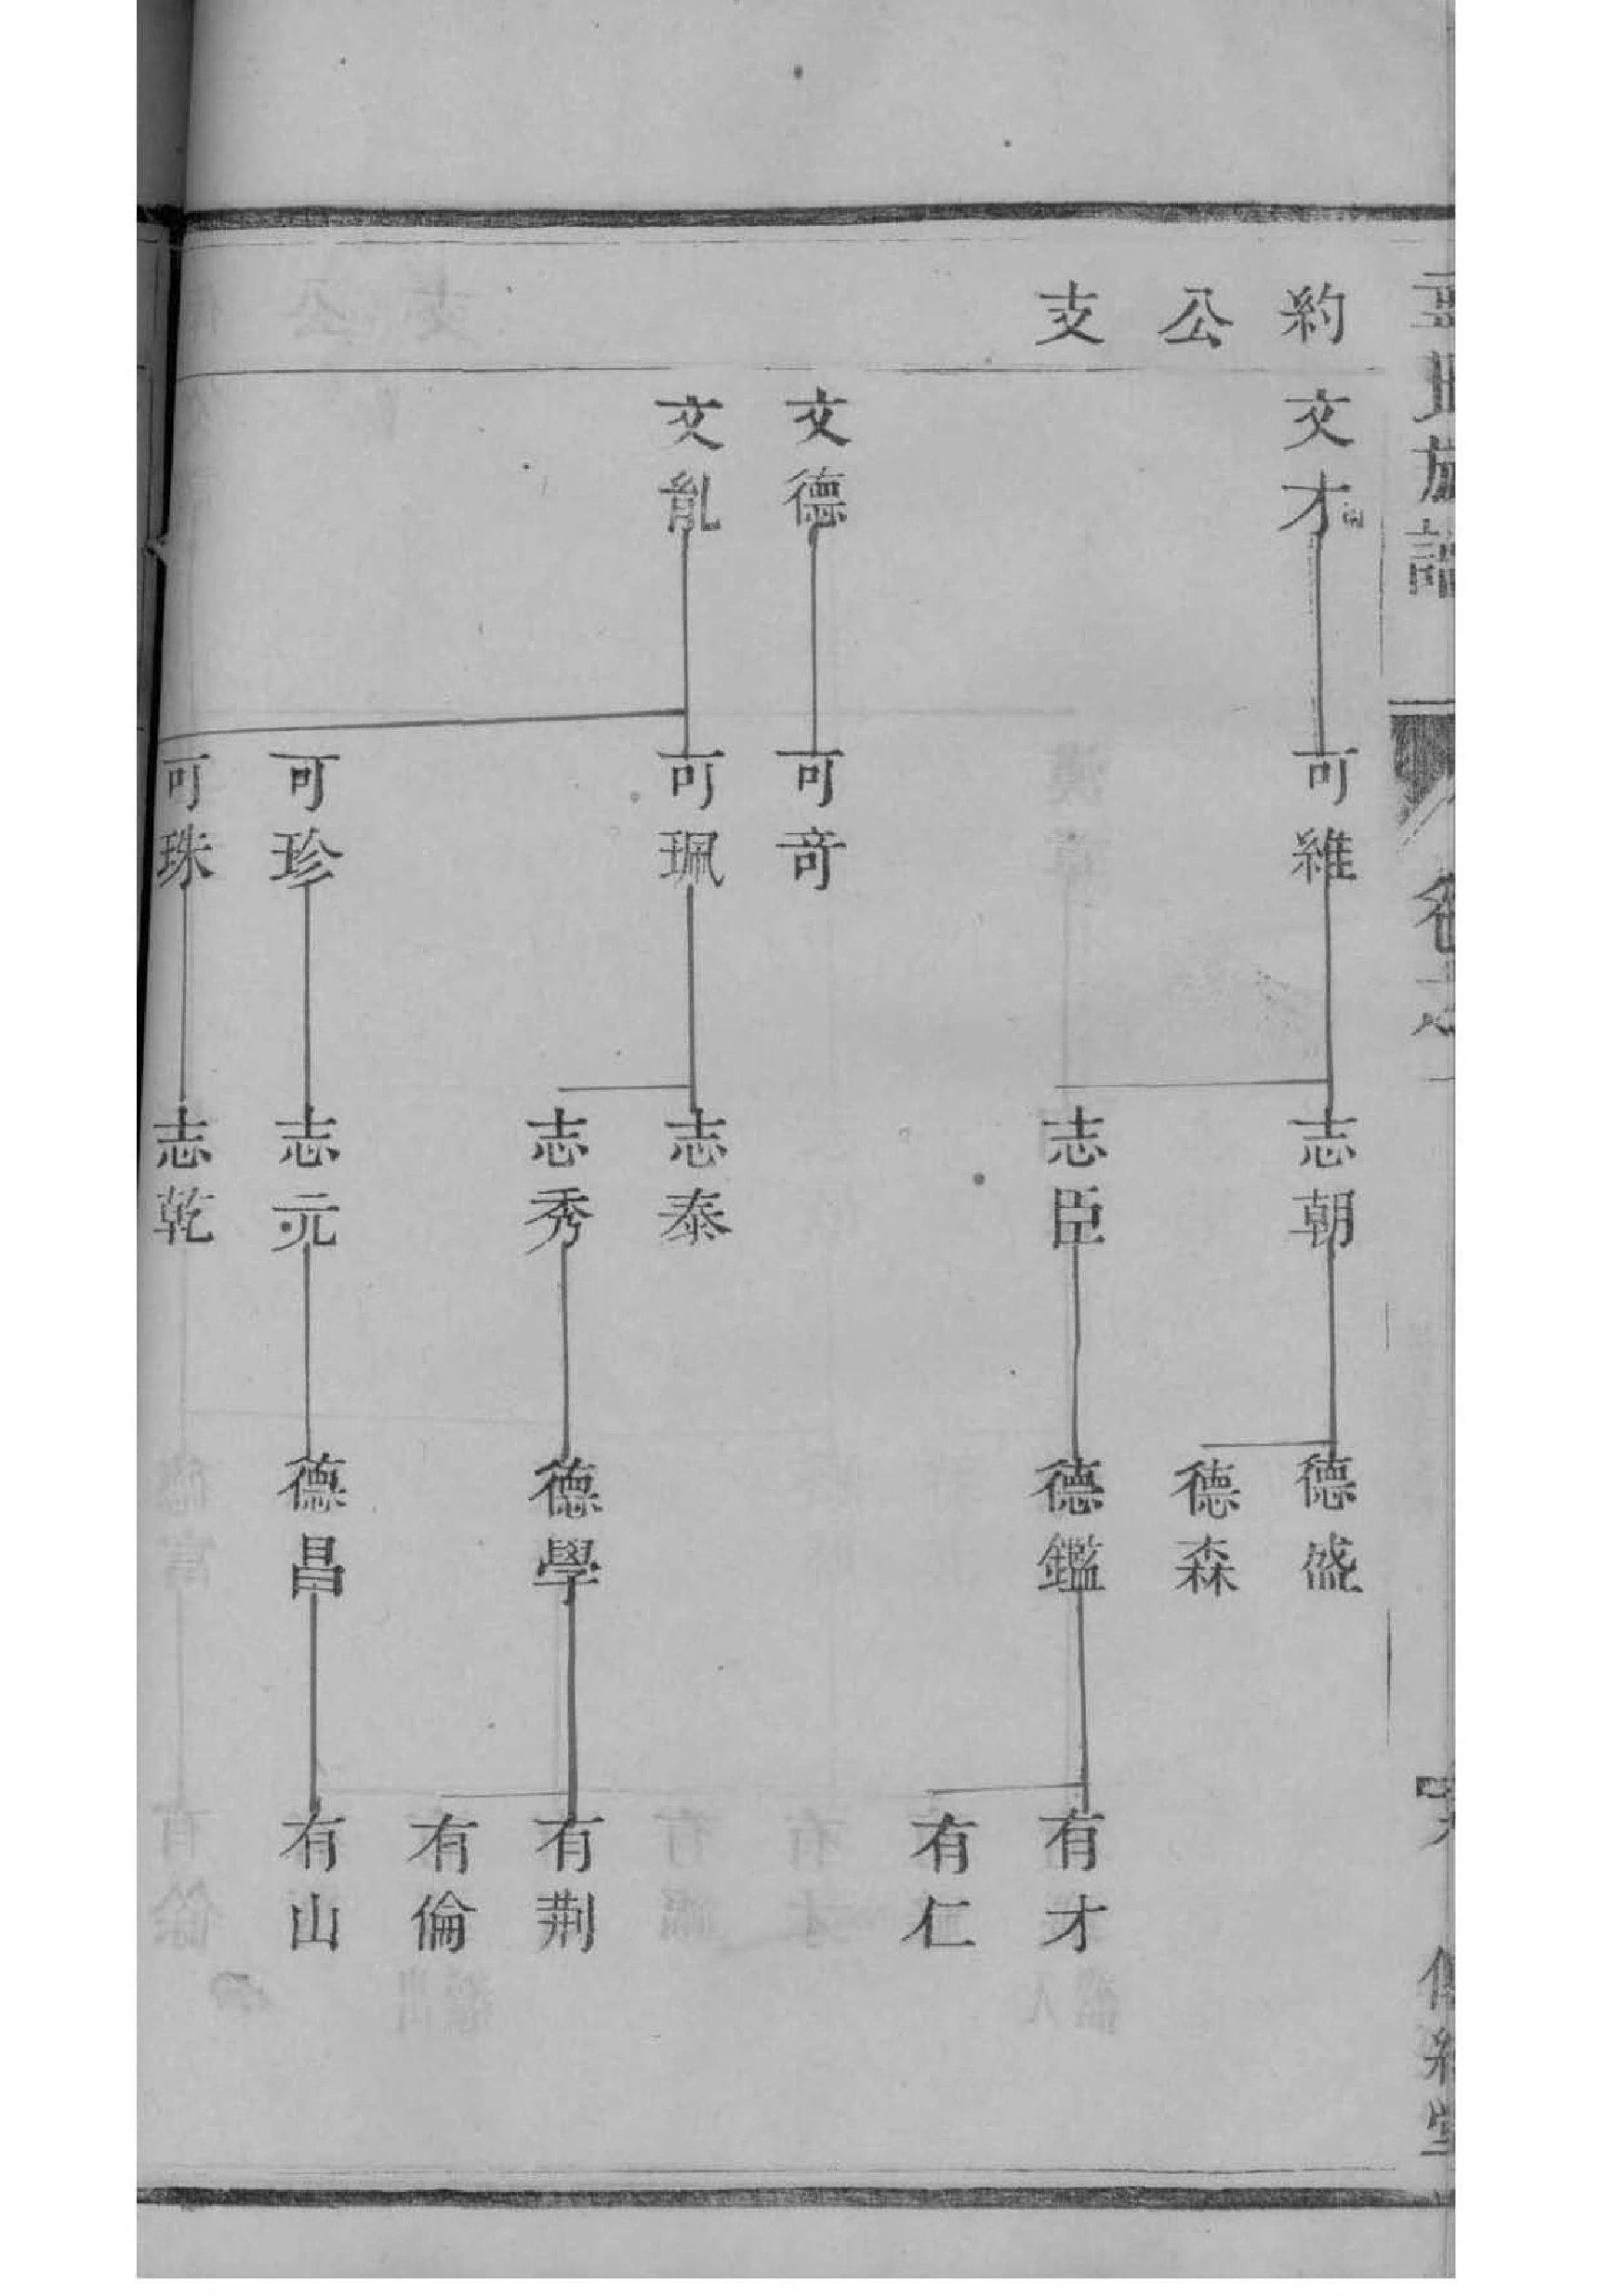 約公支
文才
文德
文亂
可維
可奇
可珮
可珍
可珠
志朝
志臣
志泰
志秀
志元
志乾
德盛
德森
德鑑
德學
德昌
有才
有仁
有荆
有倫
有山